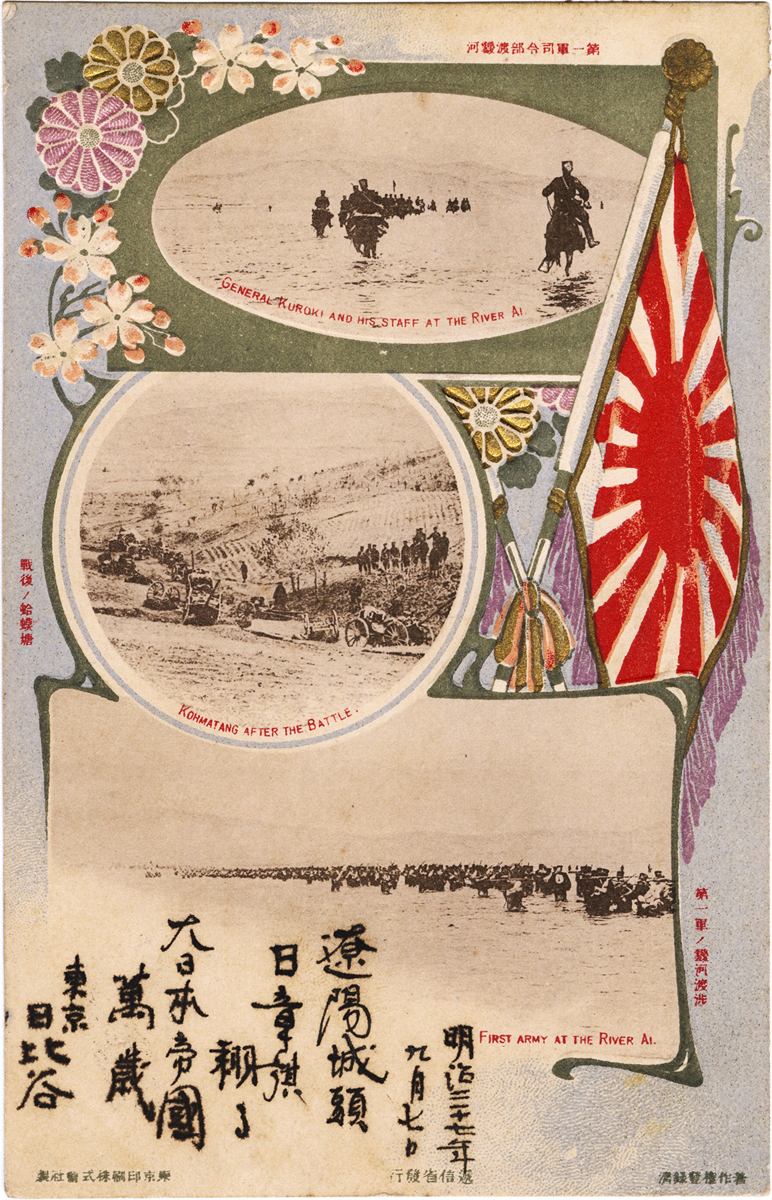 第一軍司令部渡靉河
GENERAL KUROKI AND HIS STAFF AT THE RIVER AI.
戰後ノ蛤蟆塘
KOHMATANG AFTER THE BATTLE.
第一軍ノ靉河渡渉
FIRST ARMY AT THE RIVER AI.
明治三十七年
九月七日
遼陽城頭
日章旗
翻る
大日本帝國
萬歳
東京
日比谷
著作權登録濟
遞信省發行
東京印刷株式會社製